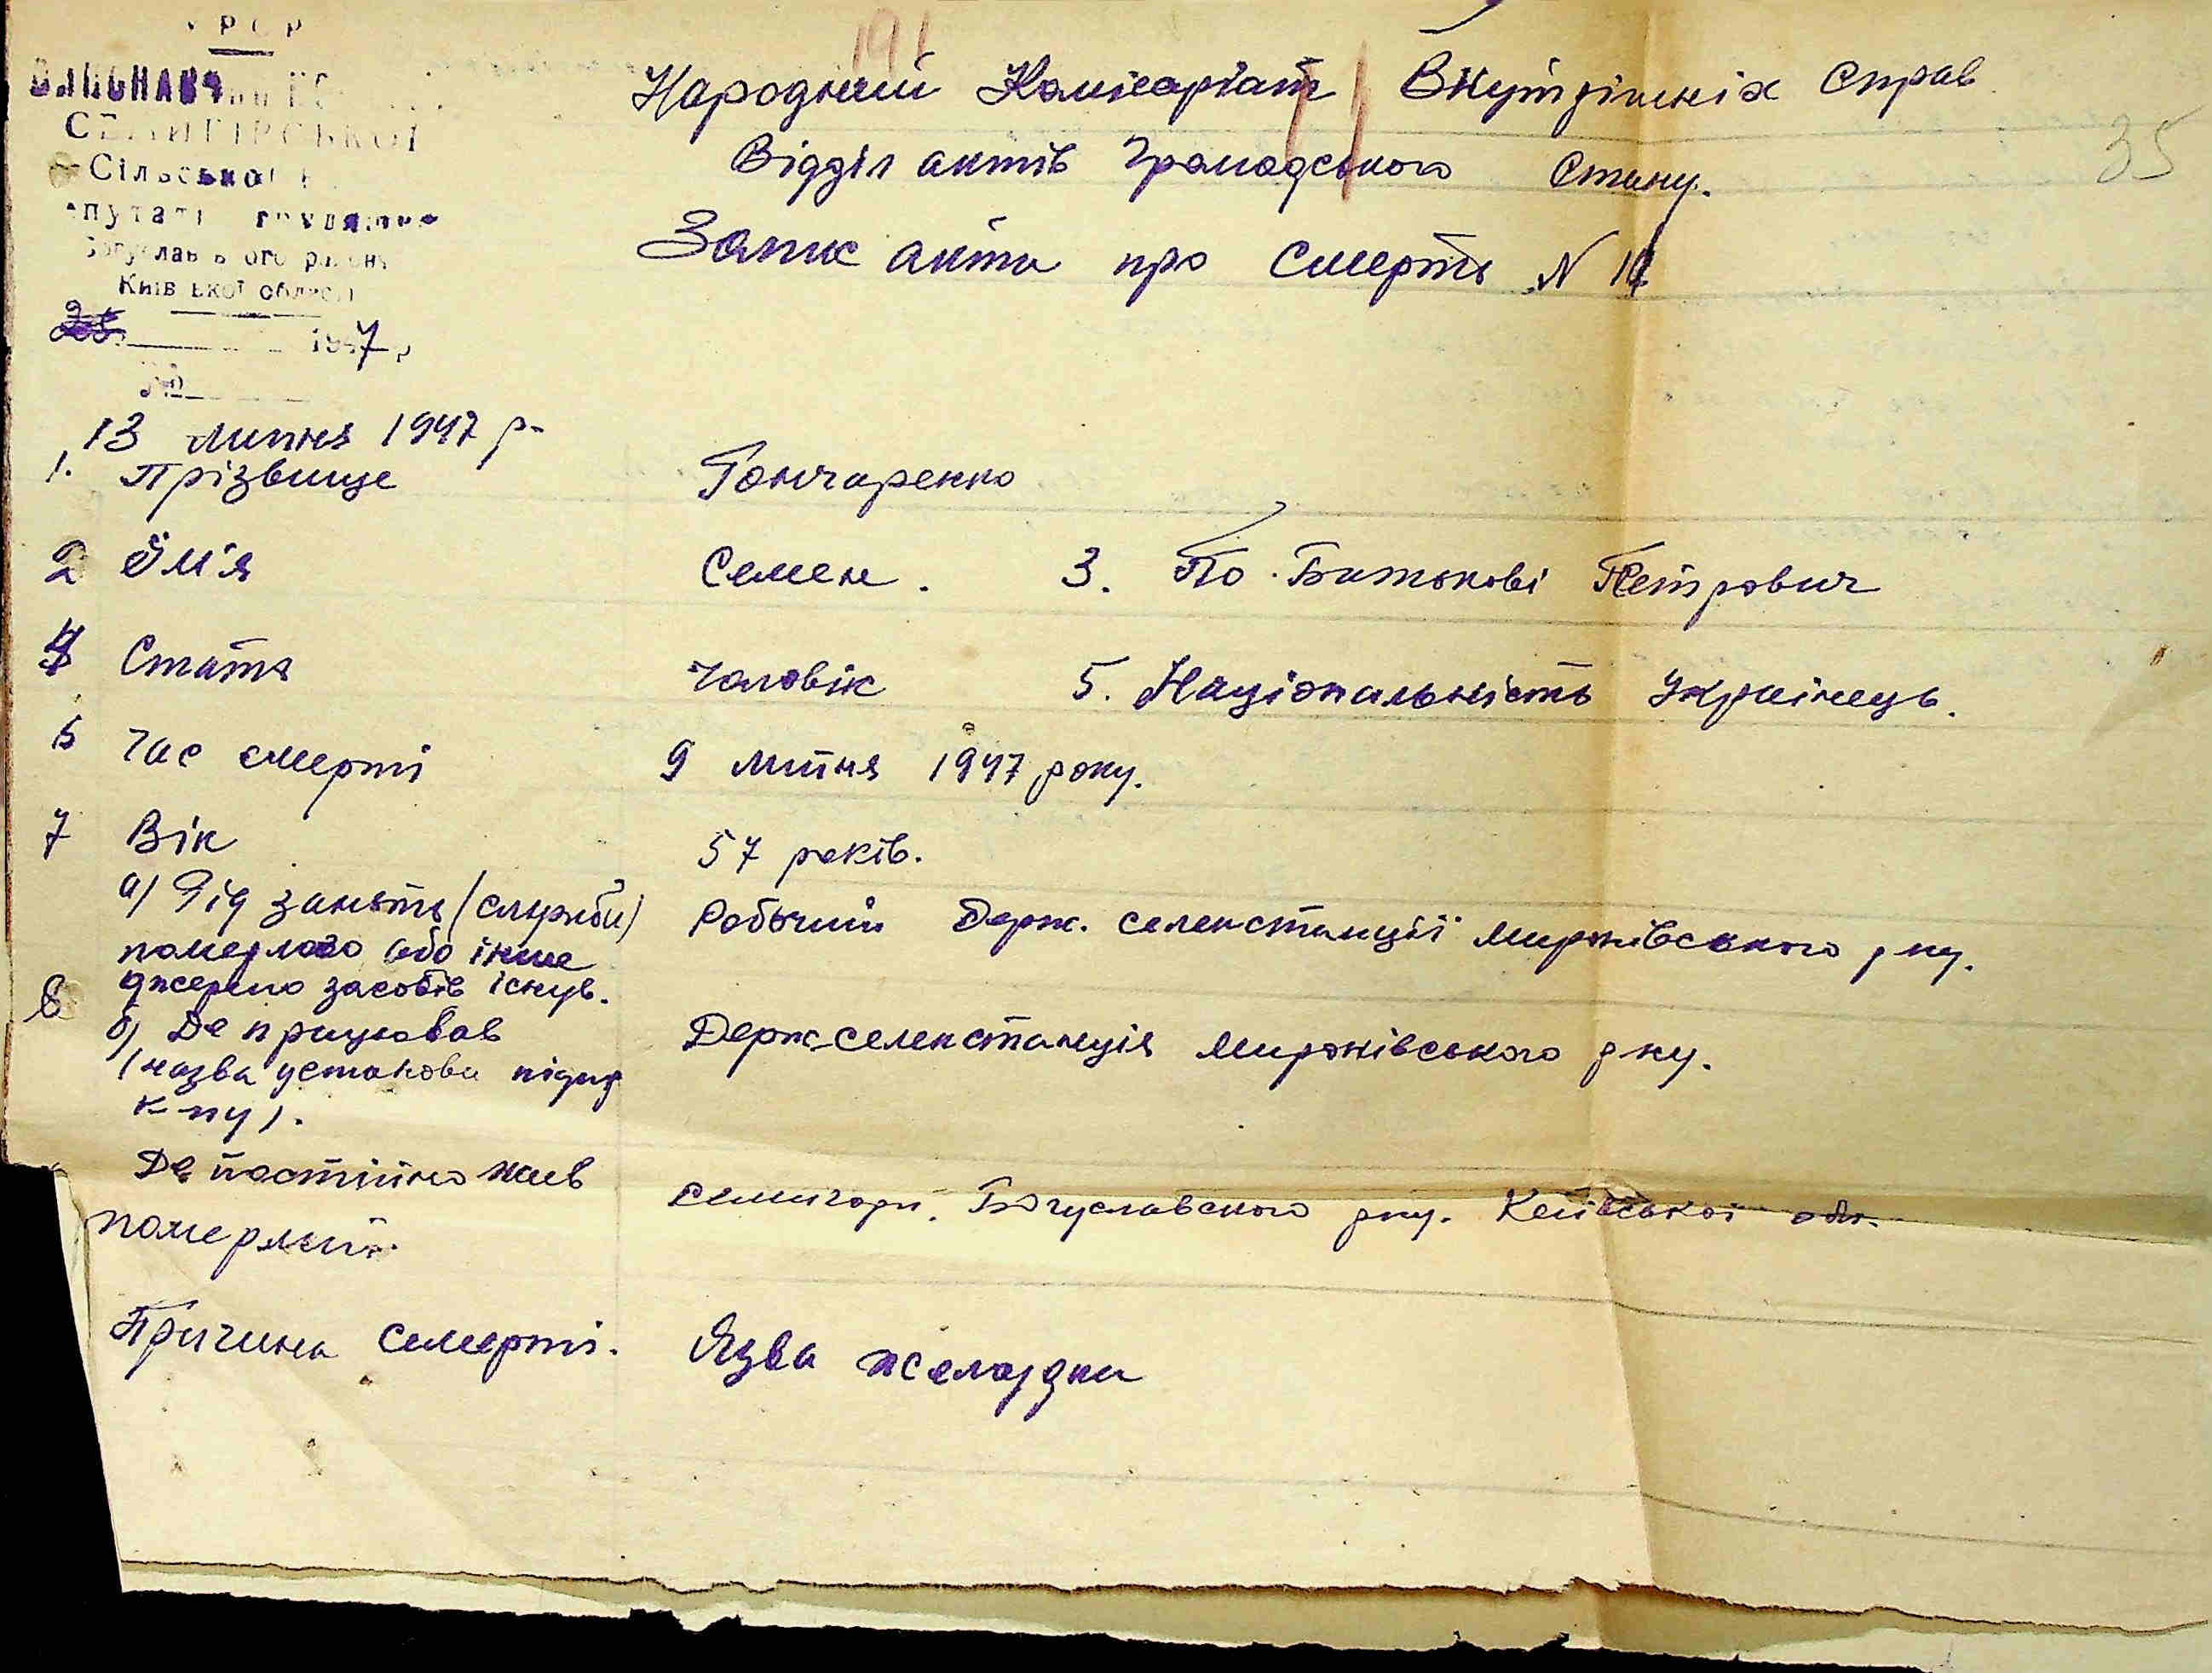 УРСР
ВИКОНАВЧ
СЕМИГІРСЬКОЇ
Сільської
путаті трудящих
Богуславського району
Київської області
25 1947 р
№
191
35
Народний Комісаріат Внутрішніх Справ
Відділ актів Громадського Стану.
Запис акта про Смерть N 14
13 липня 1947 р.
1. Прізвище Гончаренко
2 Ім'я Семен. 3. По Батькові Петрович
4 Стать Чоловік 5. Національність Українець.
6 Час смерті 9 липня 1947 року.
7 Вік 57 років.
а) Рід занять (служби) Робочий Держ. селекстанції Миронівського рну.
померлого або інше
джерело засобів існув.
8 б) Де працював Держ-селекстанція Миронівського рну.
(назва установи підпр
к-пу).
Де постійно жив Семигори. Богуславского рну. Київської обл.
померлий
Причина Смерті. Язва желудка